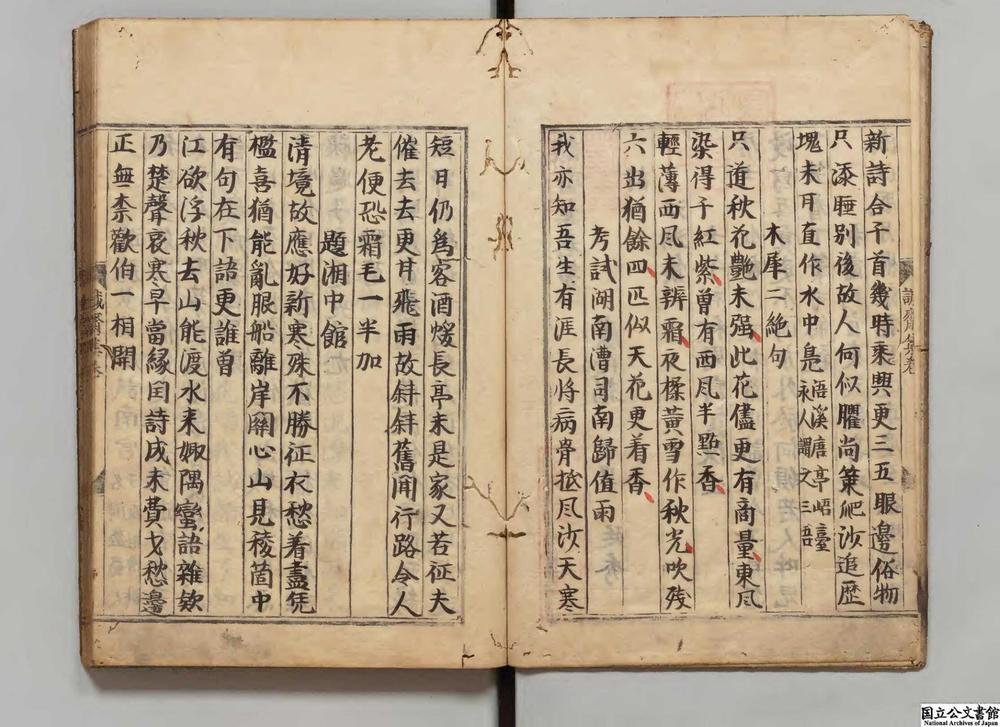 新詩合千首幾時乘興更三五眼邊俗物
只添睡别後故人何似臞尚策爬沙追歷
塊未甘直作水中鳧浯溪𢈪亭峿臺
永人謂之三吾
木犀二絶句
只道秋花艷未强此花儘更有商量東風
染得千紅紫曾有西風半點香
輕薄西風未辨霜夜揉黄雪作秋光吹残
六出猶餘四匹似天花更着香
考試湖南漕司南歸值雨
我亦知吾生有涯長將病骨抵風沙天寒
短日仍爲客酒煖長亭未是家又苦征夫
催去去更甘飛雨故斜斜舊聞行路令人
老便恐霜毛一半加
題湘中館
清境故應好新寒殊不勝征衣愁着盡凭
檻喜猶能亂眼船離岸關心山見稜箇中
有句在下語更誰曾
江欲浮秋去山能渡水来娵隅蠻語雜欸
乃楚聲哀寒早當縁閏詩成未費才愁邊
正無柰歡伯一相開
誠齋集卷
誠齋集卷
国立公文書館
National Archives of Japan